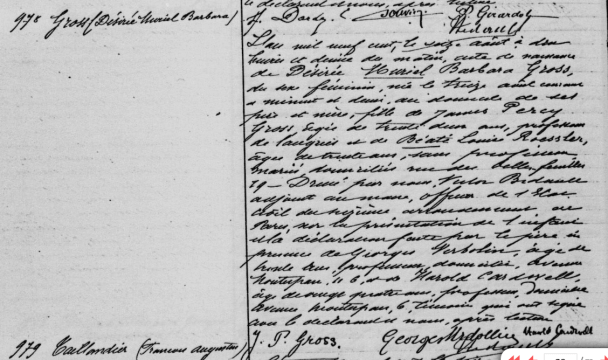 le déclarant et nous, après lecture
978 Gross (Désirée Muriel Barbara)
L'an mil neuf cent, le seize août à dix
heures et demie du matin, acte de naissance
de Désirée Muriel Barbara Gross,
du sexe féminin, née le treize août courant
à minuit et demi, au domicile de ses
père et mère, fille de James Percy
Gross, âgé de trente deux ans, professeur
de langues et de Béate Louise Roessler,
âgée de trente ans, sans profession
mariés, domiciliés rue des Belles feuilles
29 – Dressé par nous, Victor
adjoint au maire, officier de l'État
civil du seizième arrondissement de
Paris, sur la présentation de l'enfant
et la déclaration faite par le père en
présence de Georges âgé de
trente trois professeur, domicilié, avenue
11 b, et de Harold Cardwell,
âgé de vingt quatre ans, professeur, domicilié
avenue témoins qui ont signé
avec le déclarant et nous, après lecture
J. P. Gross. Georges Harold Cardwell
979 Taillandier (François Augustin)